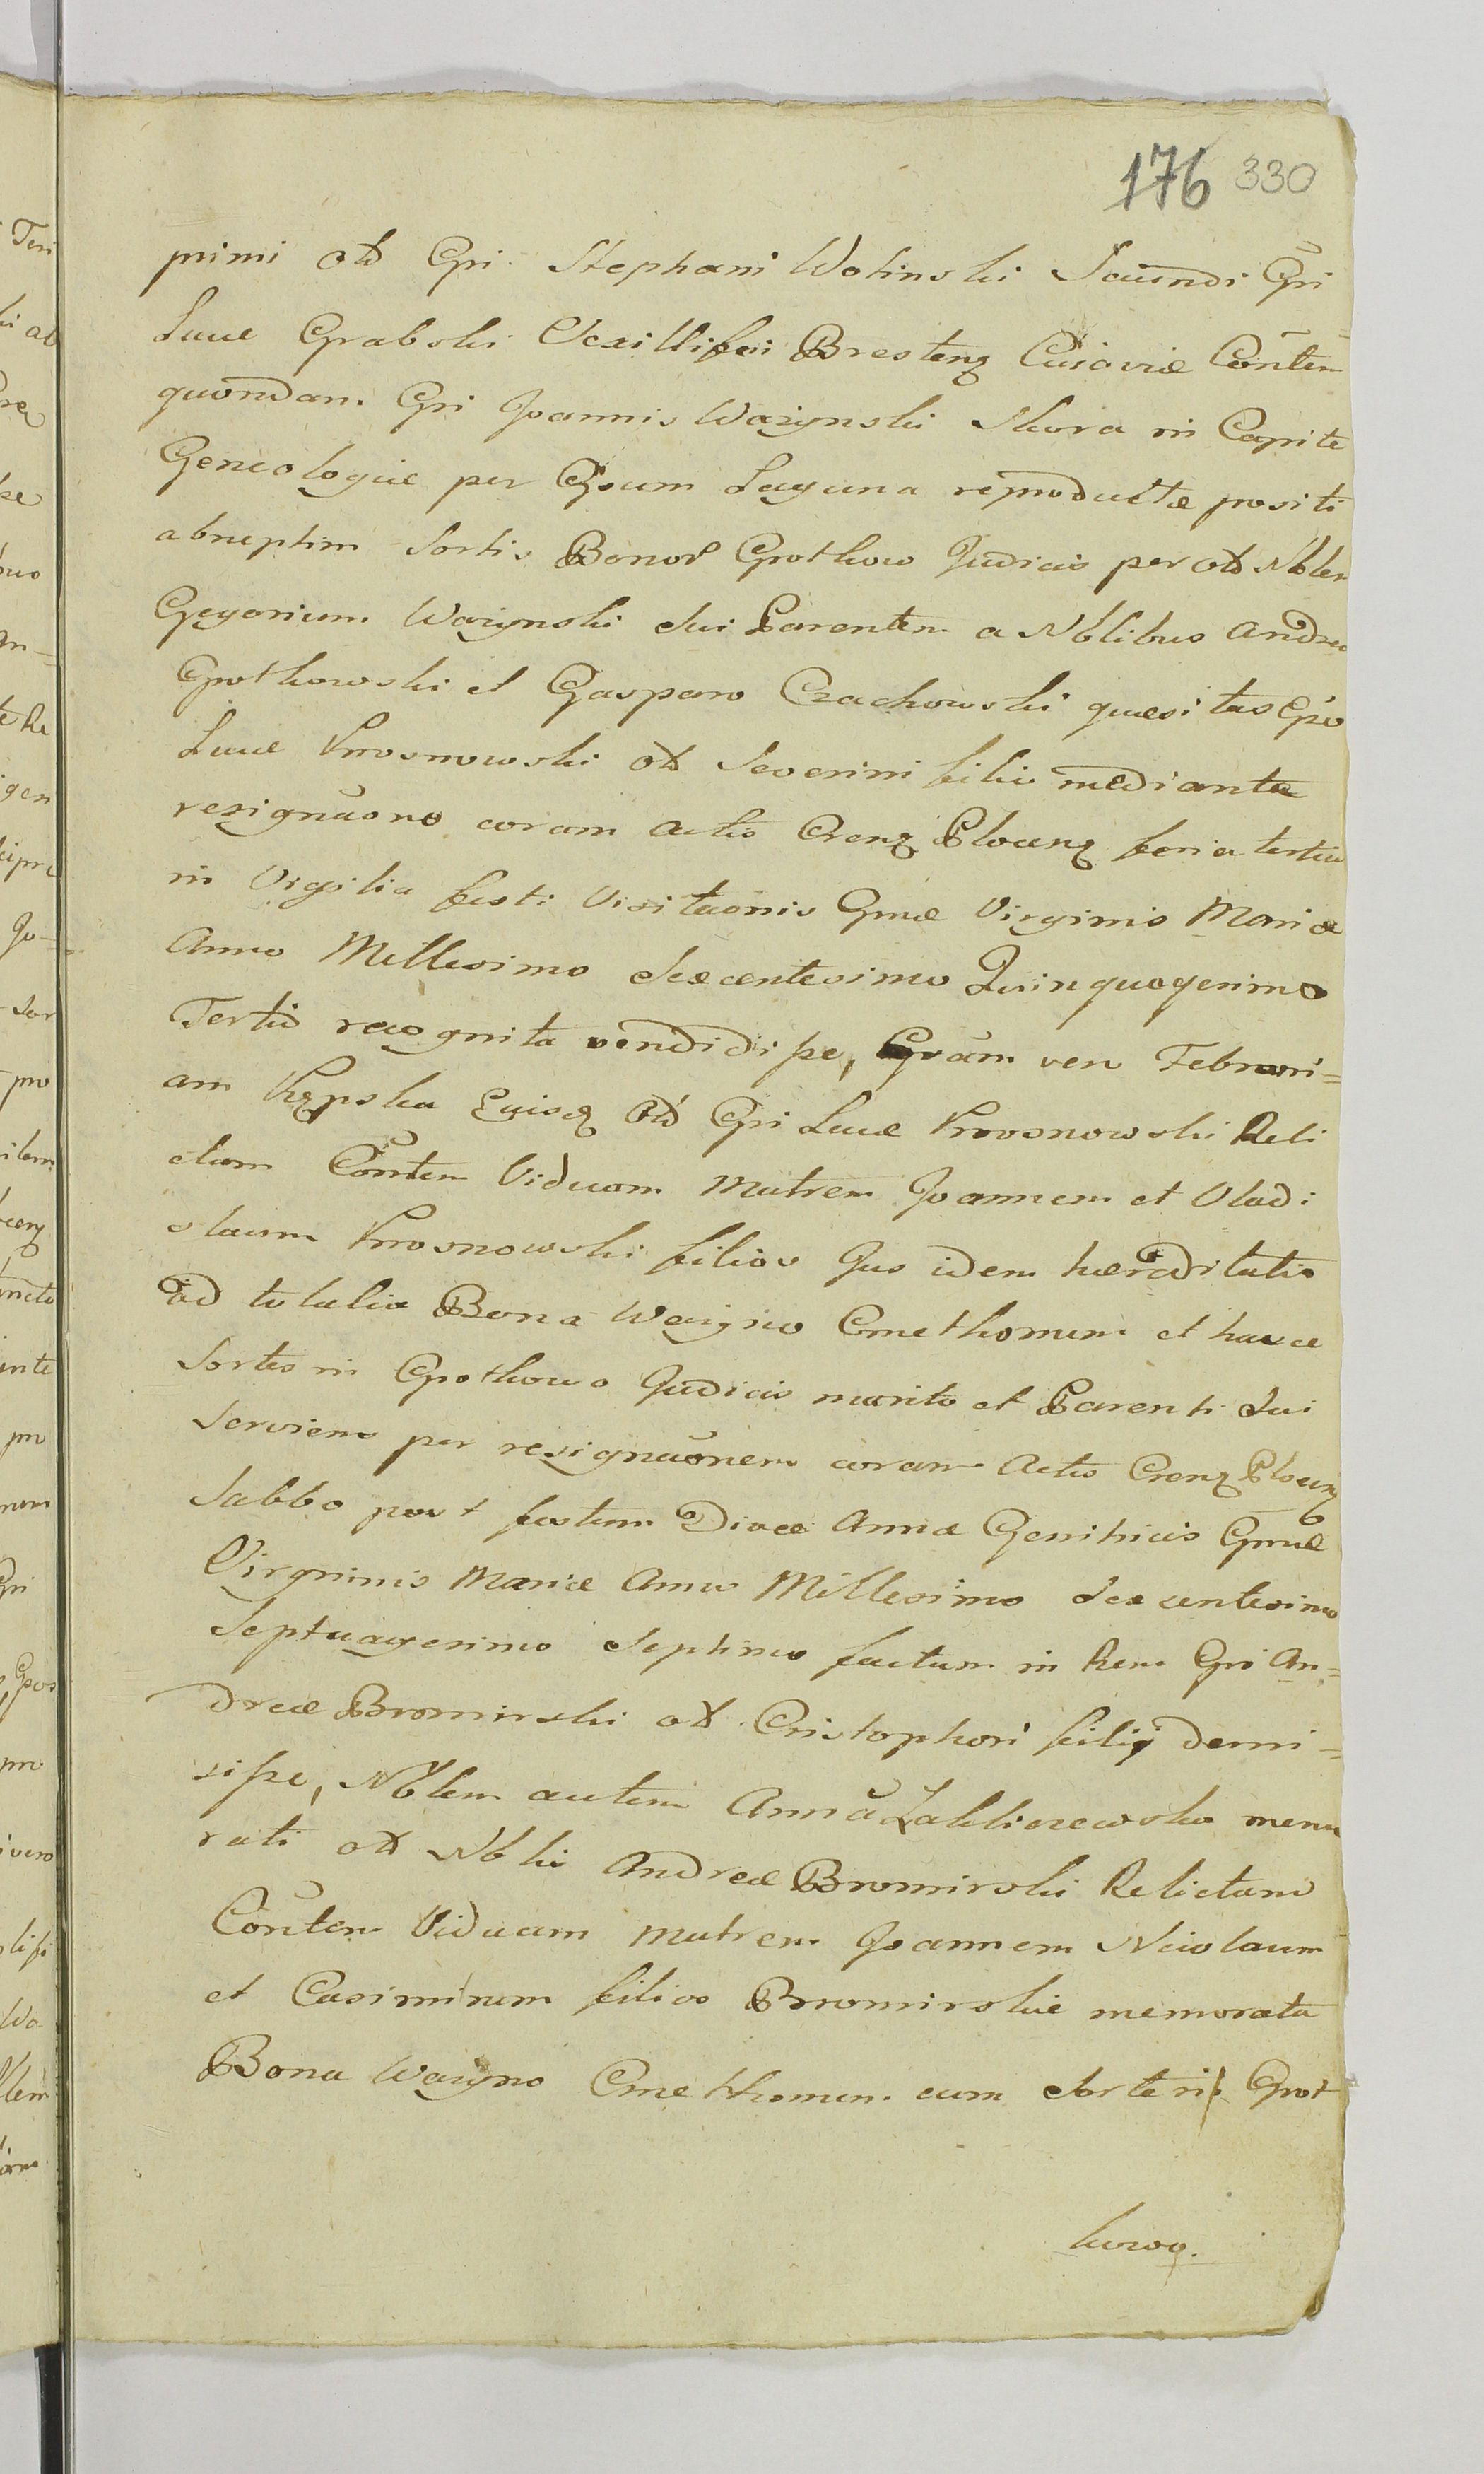 176 330
primi olt Gri Stephani Wolinski Secundi Gri
Lucæ Grabski Vexilliferi Bresteng Cujaviæ Conten
quondam Gri Joannis Warynski Skora in Capite
Geneologiæ per Gsum Laguna reproductæ positi
abneptim Sortis Bonor Grotkow Judicis per olt Nblem
Gregorium Warynski Sui Parentem a Nblibus Andrea
Grotkowski et Gasparo Czachowski quæsitas Gro
Lucæ Krosnowski olt Severini filio mediante
resignaone coram Actis Creng Ploceng feria tertia
in Vigilia festi Visitaonis Gmæ Virginis Mariæ
Anno Millesimo Sexcentesimo Quinquagesimo
Tertio recognita vendidisse, Gram vero Februari=
am Kępska Ejusq olt Gri Lucæ Krosnowski Reli
ctam Conten Viduam Matrem Joannem et Vladi
slaum Krosnowski filios Jus idem hæreditatis
ad totalia Bona Waryno Cmethonum et hasce
Sortes in Grotkowo Judicis marito et Parenti Sui
Serviens per resignaonem coram Actis Creng Ploceng
Sabbo post festum Divæ Annæ Genitricis Gmæ
Virginis Mariæ Anno Millesimo Sexcentesimo
Septuagesimo Septimo factum in Rem Gri An=
dreæ Bromirski olt Cristophori filij demi=
sisse, Nblem autem Annã Zakliczewska memo
rati olt Nblis Andreæ Bromirski Relictam
Conten Viduam Matrem Joannem Nicolaum
et Casimirum filios Bromirskie memorata
Bona Waryno Cmethonum cum Sorte in Grot
kowo.